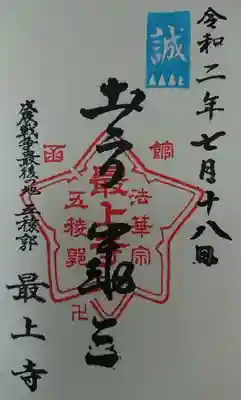 令和二年七月十八日
誠
土方歳三
函館
法華宗
最上寺
五稜郭
卍
戊辰戦争最後の地 五稜郭
最上寺